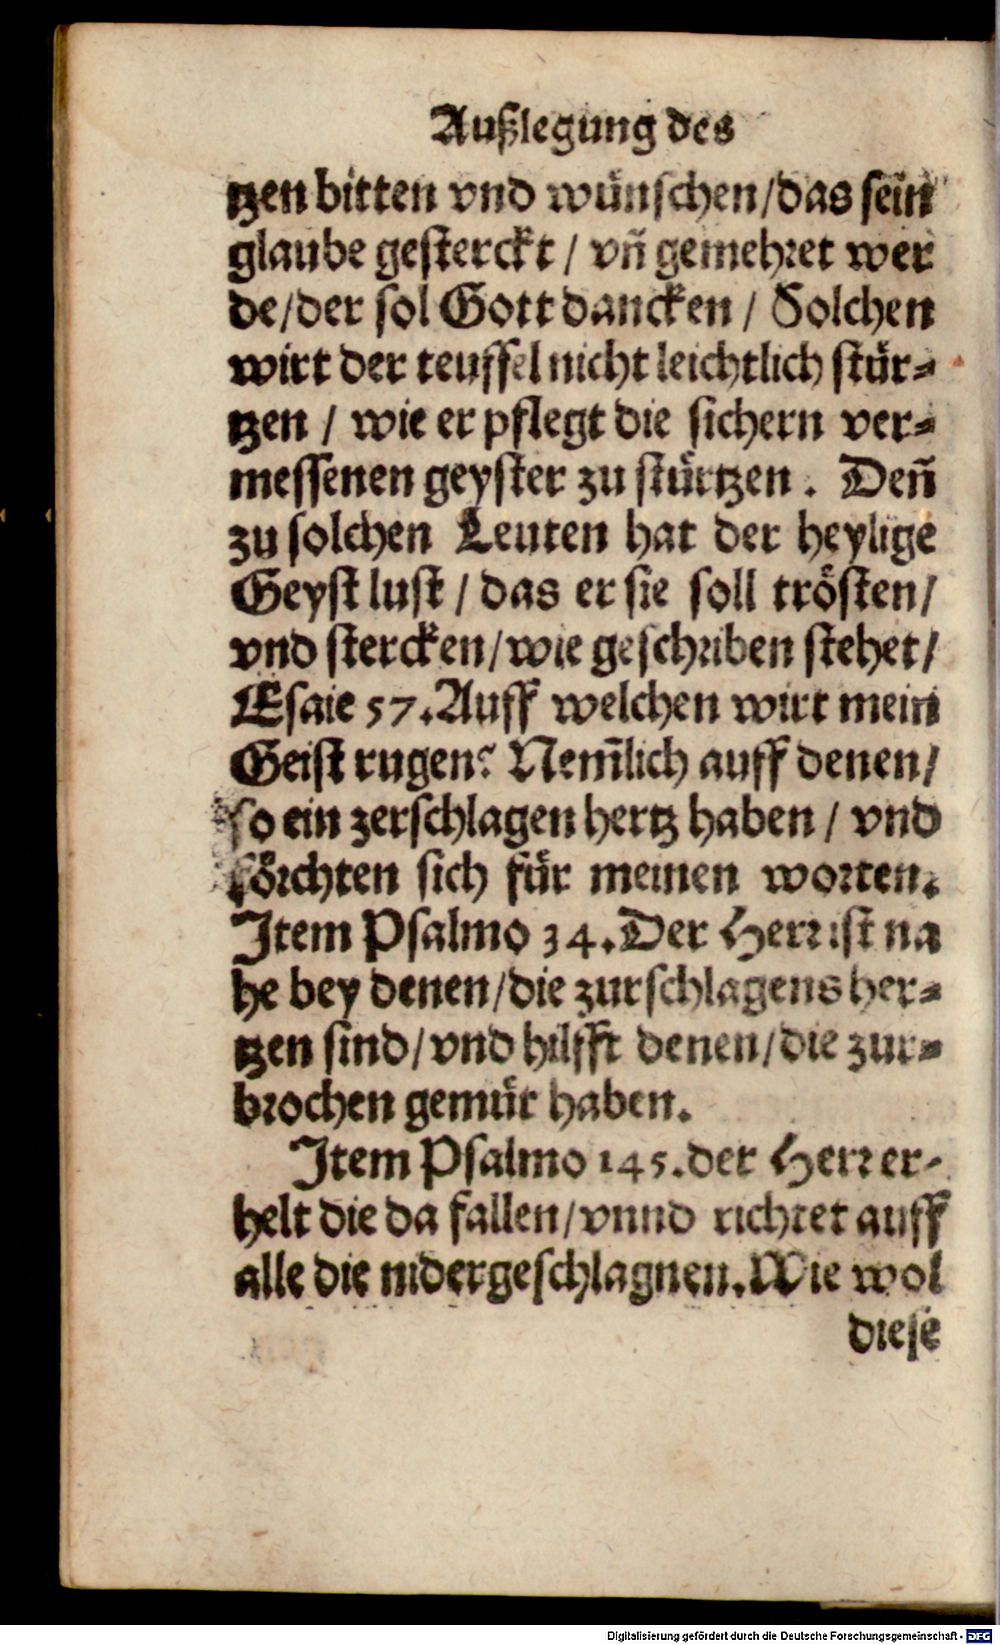 Außlegung des
tzen bitten vnd wünschen/das sein
glaube gesterckt / vñ gemehret wer
de/der sol Gott dancken / Solchen
wirt der teuffel nicht leichtlich stür⸗
tzen / wie er pflegt die sichern ver⸗
messenen geyster zu stürtzen . Deñ
zu solchen Leuten hat der heylige
Geyst lust / das er sie soll trösten/
vnd stercken/wie geschriben stehet/
Esaie 57.Auff welchen wirt mein
Geist rugen? Nem̃lich auff denen/
so ein zerschlagen hertz haben / vnd
förchten sich für meinen worten.
Item Psalmo 34.Der Herr ist na
he bey denen/die zurschlagens her⸗
tzen sind/vnd hilfft denen/die zur⸗
brochen gemüt haben.
Item Psalmo 145.der Herr er-
helt die da fallen/vnnd richtet auff
alle die nidergeschlagnen.Wie wol
diese
Digitalisierung gefördert durch die Deutsche Forschungsgemeinschaft - DFG